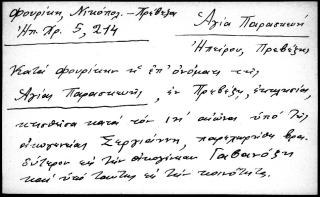 Φουρίκη, Νικόπολ. – Πρέβεζα
Ἠπ. Χρ. 5, 214
Ἁγία Παρασκευή
Ἠπείρου, Πρεβέζης
Κατὰ Φουρίκην ἡ ἐπ' ὀνόματι τῆς
Ἁγίας Παρασκευῆς, ἐν Πρεβέζῃ, ἐκκλησία,
κτισθεῖσα κατὰ τὸν ιη' αἰῶνα ὑπὸ τῆς
οἰκογενείας Σεργιάννη, παρεχωρήθη βρα-
δύτερον εἰς τὴν οἰκογένειαν Γαβανόζη
καὶ ὑπὸ ταύτης εἰς τὴν κοινότητα.